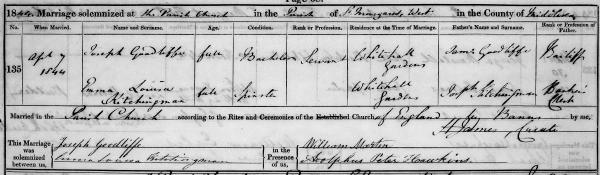 1844. Marriage solemnized at the Parish Church in the Parish of St Margarets West in the County of Middlesex
No. When Married. Name and Surname. Age. Condition. Rank or Profession. Residence at the Time of Marriage. Father's Name and Surname. Rank or Profession of Father.
135 April 7 1844 Joseph Goodliffe full Bachelor Servant Whitehall Gardens James Goodliffe Bailiff
Emma Louisa Kitchingman full Spinster Whitehall Gardens Joseph Kitchingman Clerk
Married in the Parish Church according to the Rites and Ceremonies of the Established Church of England by Banns by me,
Curate
This Marriage was solemnized between us, Joseph Goodliffe Emma Louisa Kitchingman in the Presence of us, William Morton Adolphus Peter Hawkins.